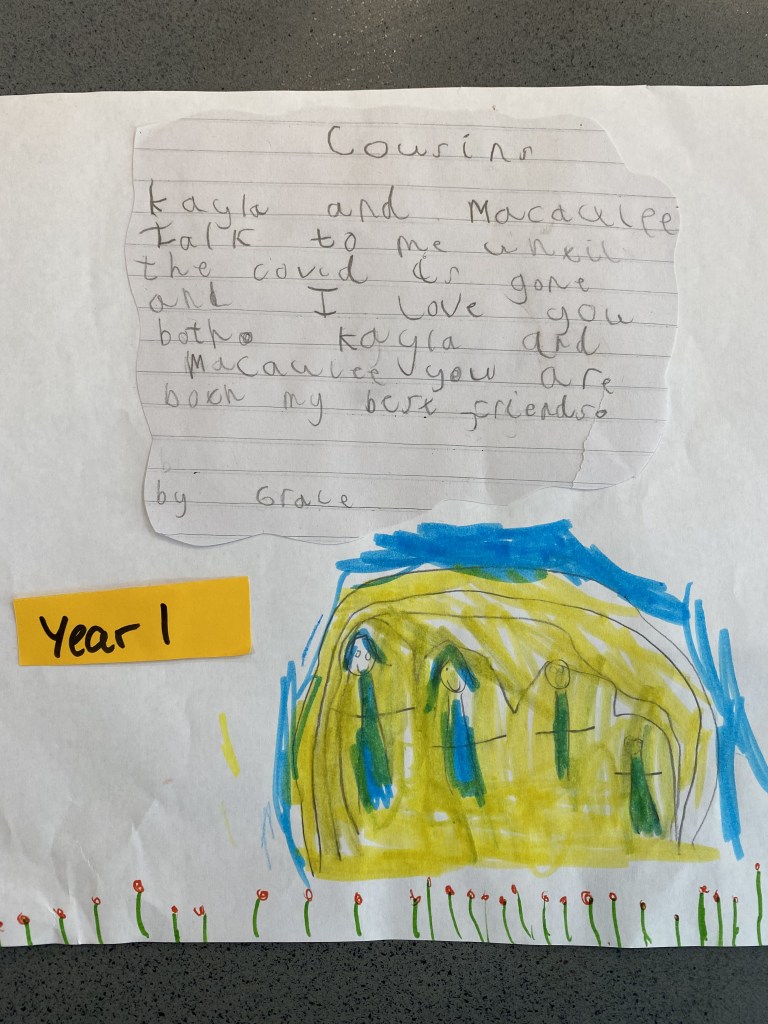 Cousins
Kayla and Macaulee
talk to me until
the covid is gone
and I Love you
both. Kayla and
Macaulee you are
both my best friends.
by Grace
Year 1